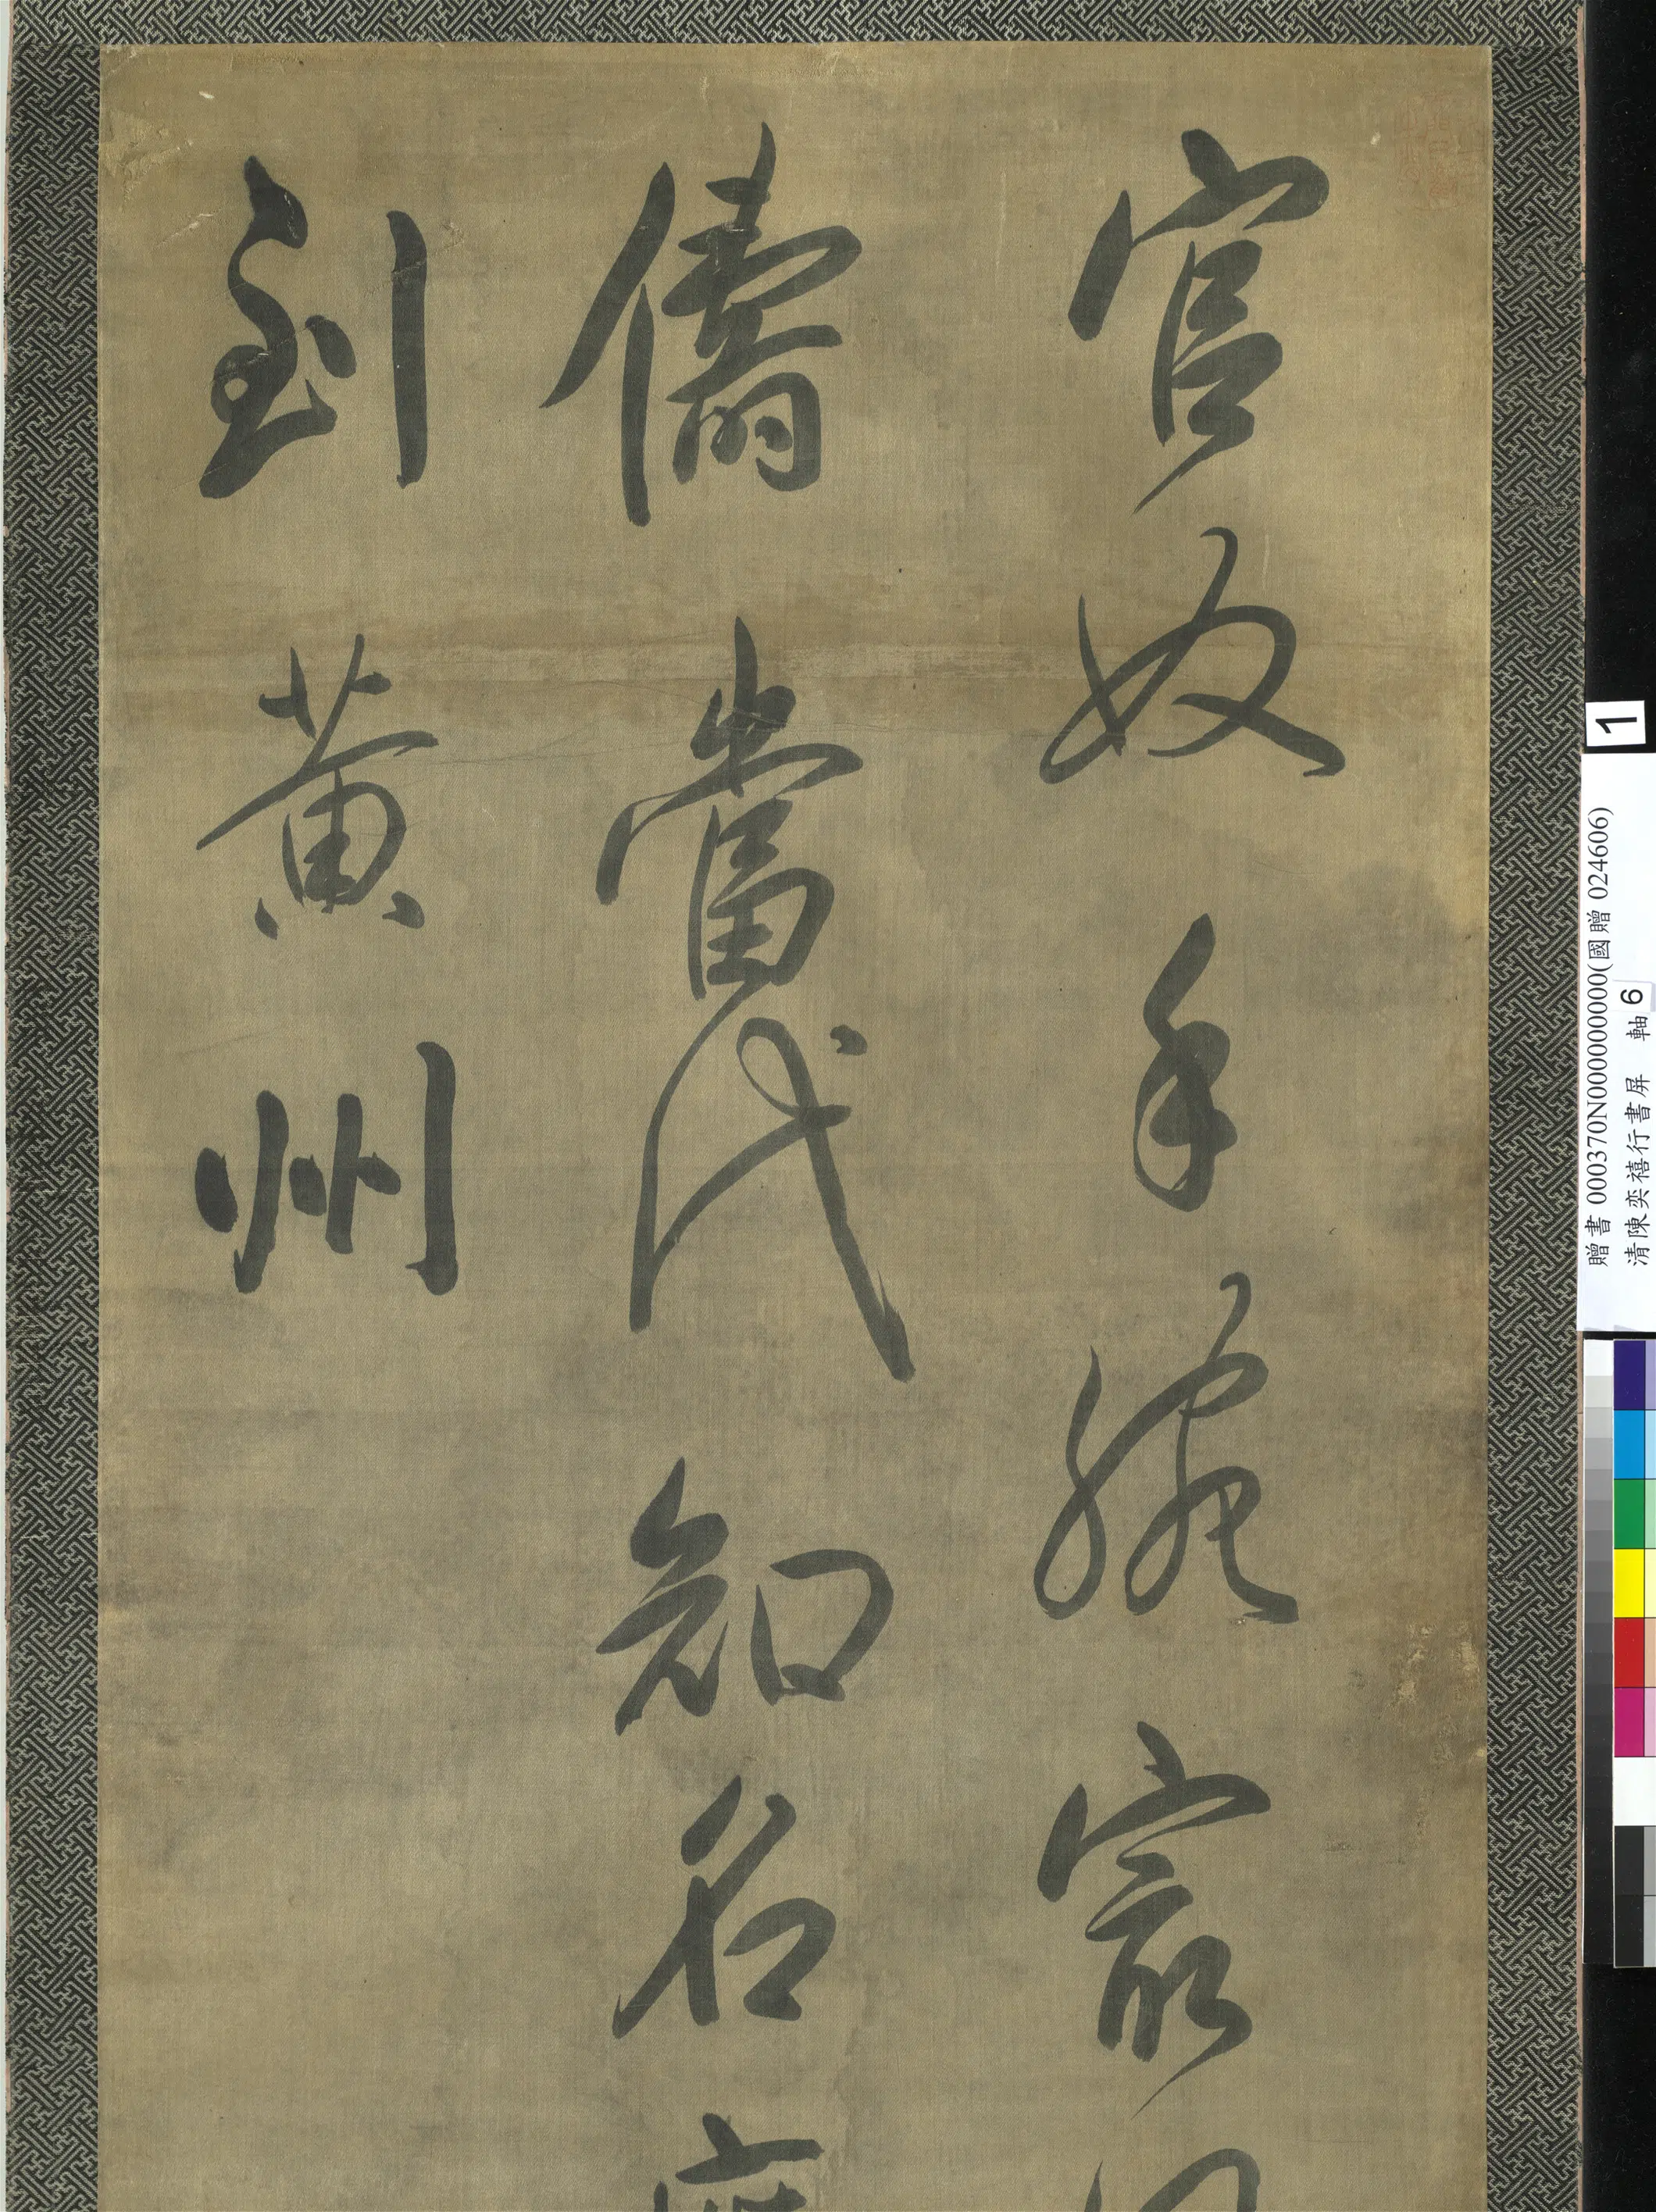 官奴手腕家
儔當代知名
到黃州
1
贈書 000370N000000000(國贈 024606)
清陳奕禧行書屏 軸 6